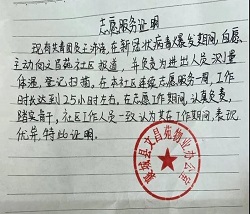 志愿服务证明
现有共青团员王亦涛,在新冠状病毒爆发期间,自愿
主动向文昌苑社区报道,并负责为进出人员测量
体温,登记扫描。在本社区连续志愿服务一周,工作
时长达到25小时左右。在志愿工作期间,认真负责,
踏实肯干,社区工作人员一致认为其在工作期间,表现
优异,特此证明。
县文昌苑物业办公室